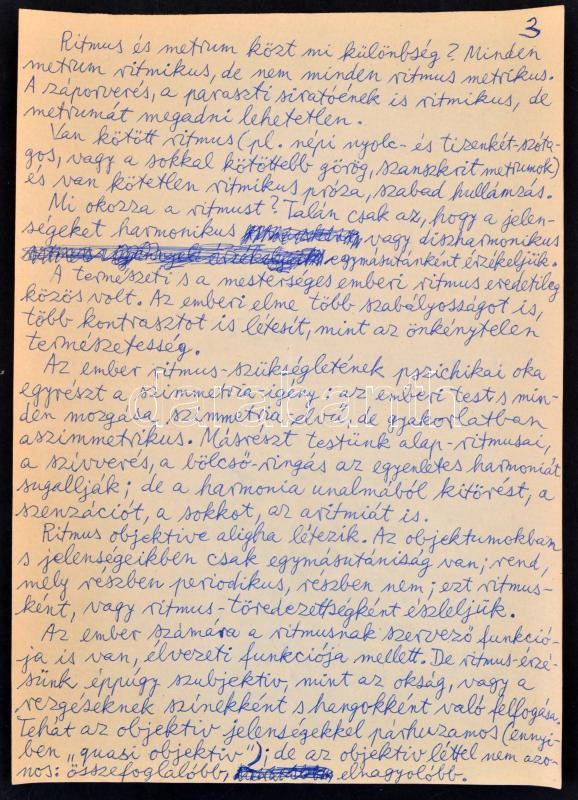 3
Ritmus és metrum közt mi különbség? Minden
metrum ritmikus, de nem minden ritmus metrikus.
A záporverés, a paraszti siratóének is ritmikus, de
metrumát megadni lehetetlen.
Van kötött ritmus (pl. népi nyolc- és tizenkét-szóta-
gos, vagy a sokkal kötöttebb görög, szanszkrit metrumok)
és van kötetlen ritmikus próza, szabad hullámzás.
Mi okozza a ritmust? Talán csak az, hogy a jelen-
ségeket harmonikus vagy diszharmonikus
egymásutánként érzékeljük.
A természeti s a mesterséges emberi ritmus eredetileg
közös volt. Az emberi elme több szabályosságot is,
több kontrasztot is létesít, mint az önkénytelen
természetesség.
Az ember ritmus-szükségletének pszichikai oka
egyrészt a szimmetria-igény: az emberi test s min-
den mozgása szimmetria elvű, de gyakorlatban
aszimmetrikus. Másrészt testünk alap-ritmusai,
a szívverés, a bölcső-ringás az egyenletes harmoniát
sugallják; de a harmonia unalmából kitörést, a
szenzációt, a sokkot, az aritmiát is.
Ritmus objektive aligha létezik. Az objektumokban
s jelenségeikben csak egymásutániság van; rend,
mely részben periodikus, részben nem; ezt ritmus-
ként, vagy ritmus-töredezettségként észleljük.
Az ember számára a ritmusnak szervező funkció-
ja is van, élvezeti funkciója mellett. De ritmus-érzé-
sünk éppúgy szubjektiv, mint az okság, vagy a
rezgéseknek színekként s hangokként való felfogása.
Tehát az objektiv jelenségekkel párhuzamos (ennyi-
ben „quasi objektiv"); de az objektiv léttel nem azo-
nos: összefoglalóbb, elnagyolóbb.
darabanth